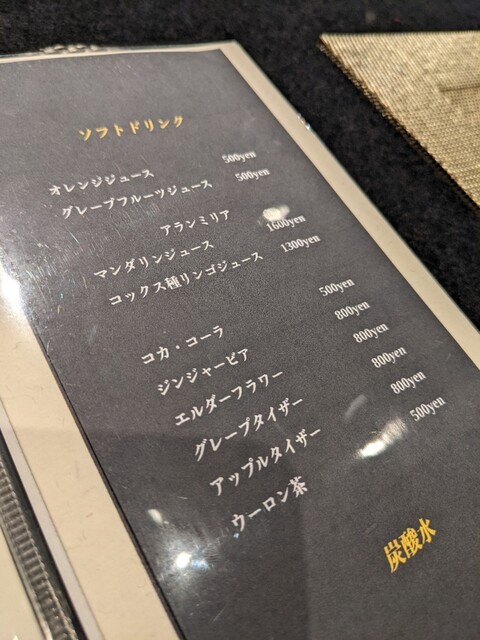 ソフトドリンク
オレンジジュース 500yen
グレープフルーツジュース 500yen
アランミリア
マンダリンジュース 1600yen
コックス種リンゴジュース 1300yen
コカ・コーラ 500yen
ジンジャービア 800yen
エルダーフラワー 800yen
グレープタイザー 800yen
アップルタイザー 800yen
ウーロン茶 500yen
炭酸水